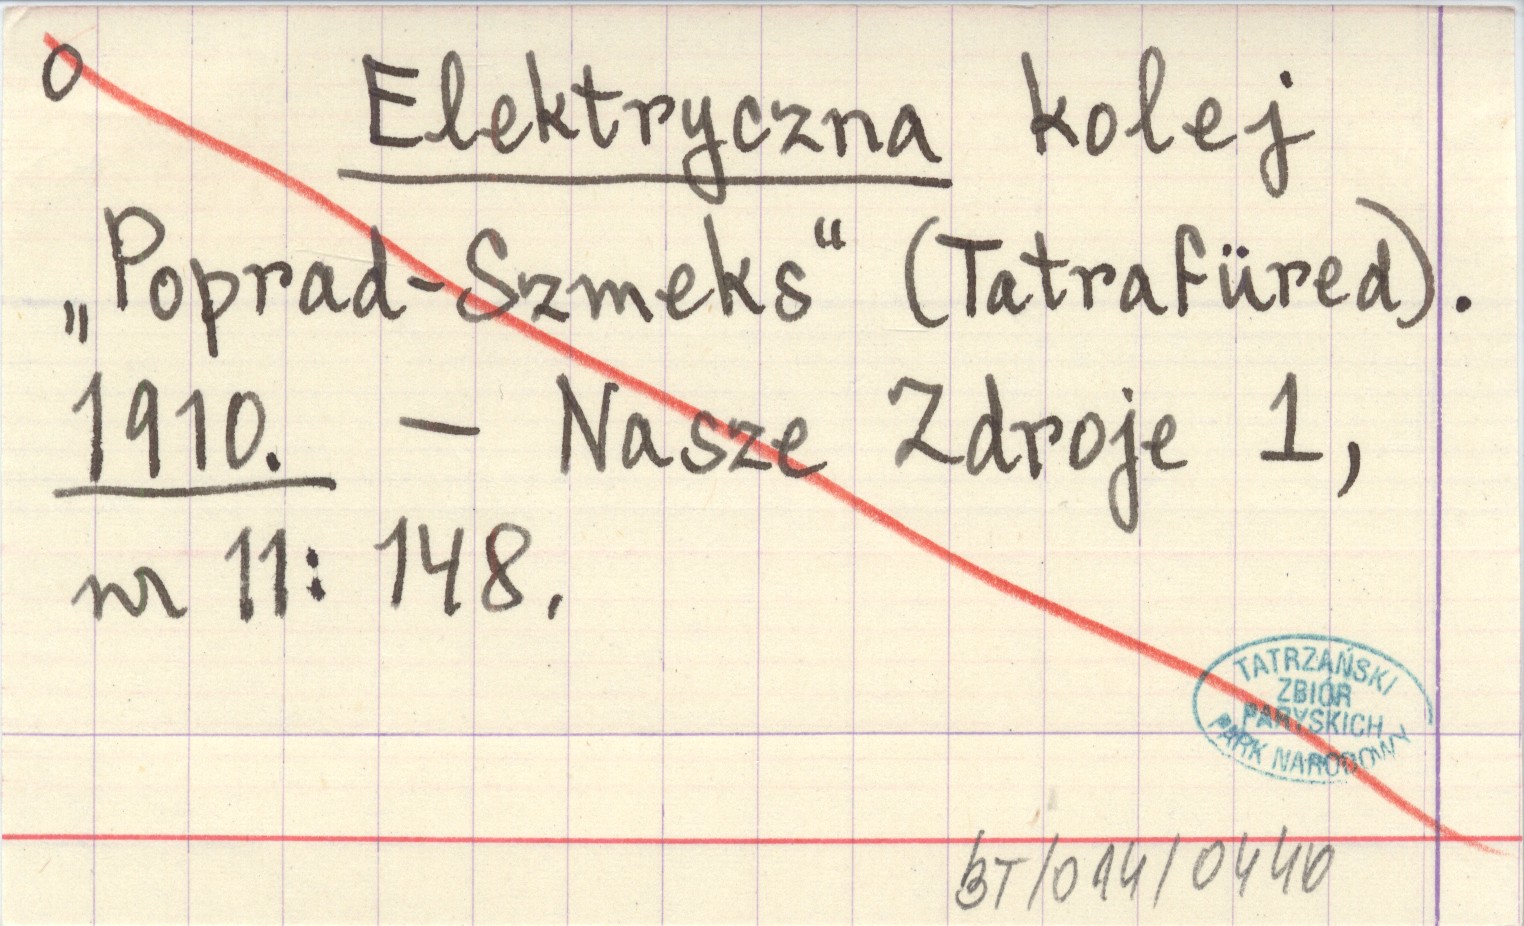 O
Elektryczna kolej
„Poprad-Szmeks“ (Tatrafüred).
1910. – Nasze Zdroje 1,
nr 11: 148.
TATRZAŃSKI
ZBIÓR
PARYSKICH
PARK NARODOWY
BT/014/0440